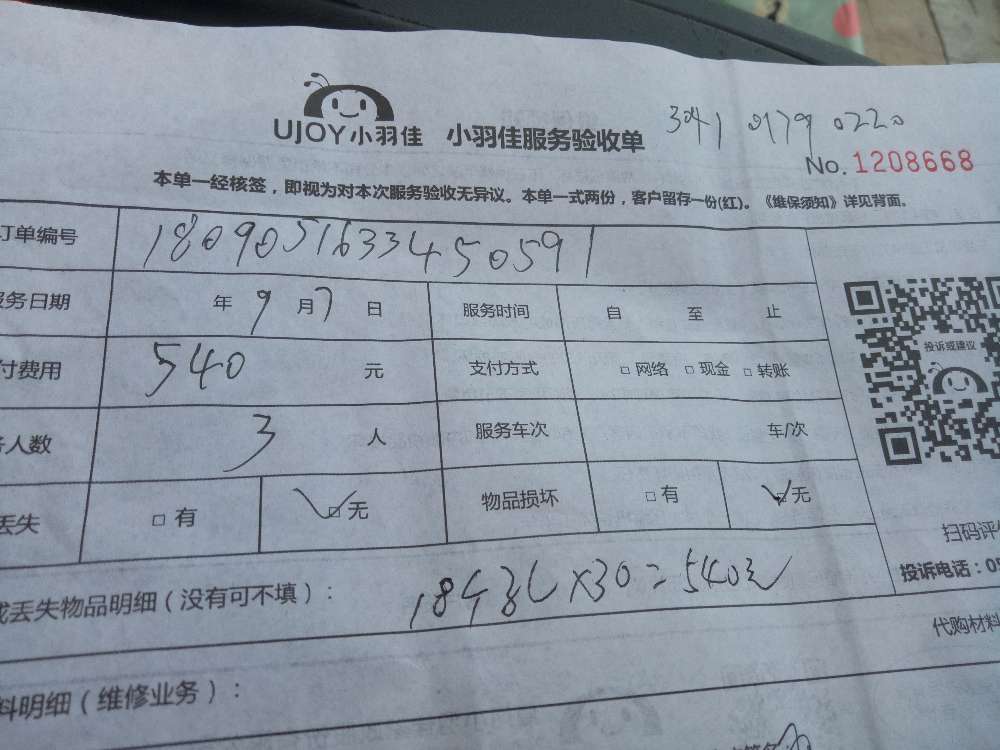 3041 0179 0220
UJOY小羽佳 小羽佳服务验收单
No. 1208668
本单一经核签，即视为对本次服务验收无异议。本单一式两份，客户留存一份(红)。《维保须知》详见背面。
订单编号 1809051633450591
服务日期 年 9 月 7 日 服务时间 自 至 止
投诉或建议
付费用 540 元 支付方式 □ 网络 □ 现金 □ 转账
人数 3 人 服务车次 车/次
丢失 □ 有 □ 无 物品损坏 □ 有 □ 无
扫码评价
投诉电话：05
丢失物品明细（没有可不填）： ×30=540元
代购材料
料明细（维修业务）：